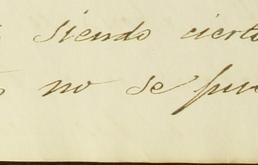 siendo cierto
no se pue